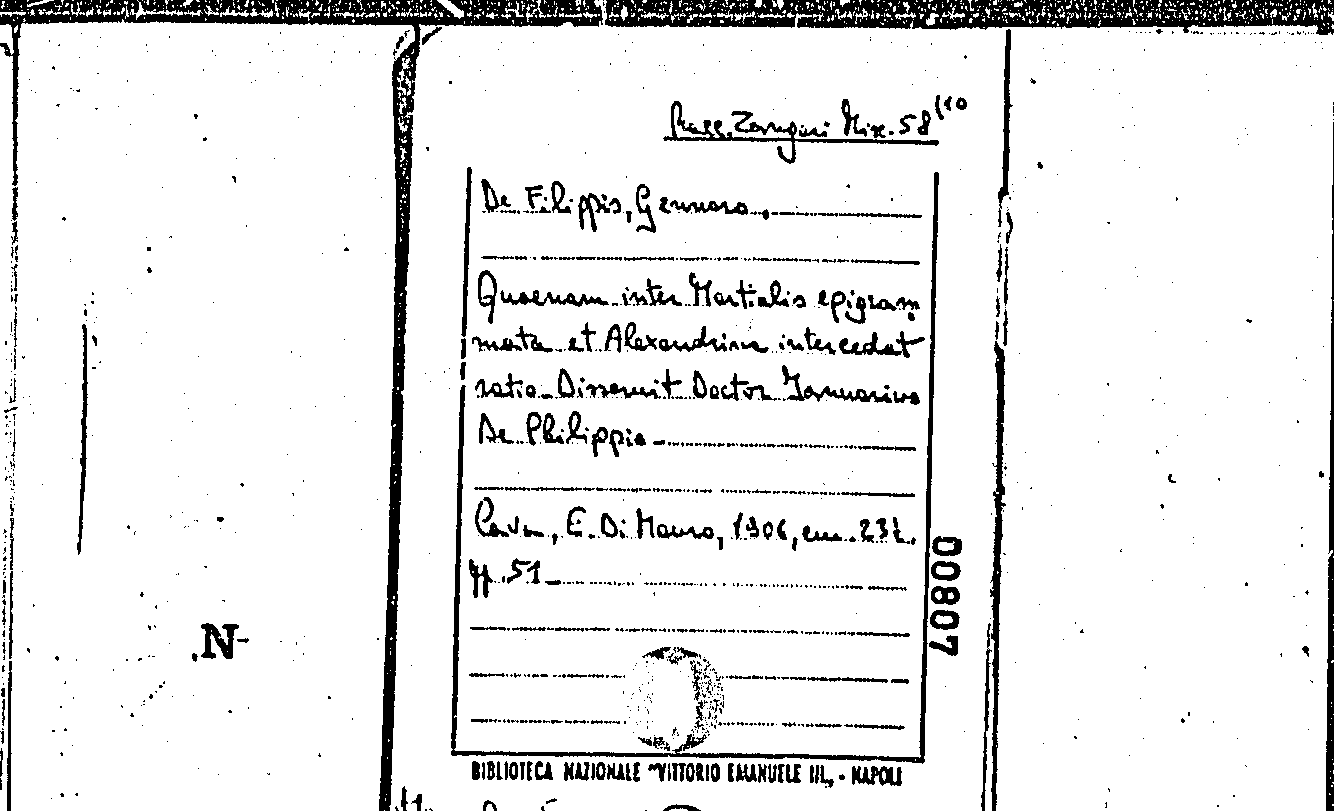 Racc. Zangari Misc. 58 (10
De Filippis, Gennaro.
Quaenam inter Martialis epigram
mata et Alexandrina intercedat
ratio. Disseruit Doctor Januarius
De Philippis.
Cava, E. Di Mauro, 1906, cm. 23½.
pp. 51.
00807
.N-
BIBLIOTECA NAZIONALE "VITTORIO EMANUELE III„ - NAPOLI